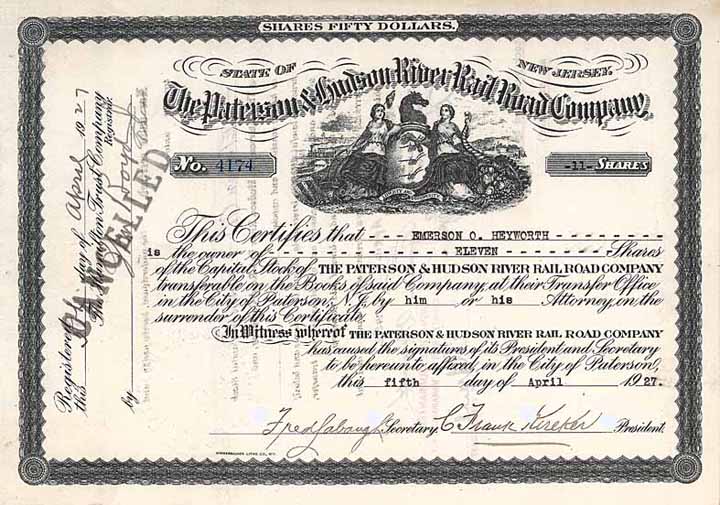 SHARES FIFTY DOLLARS.
STATE OF NEW JERSEY.
The Paterson & Hudson River Rail Road Company
No. 4174
-11- SHARES
This Certifies that ---- EMERSON O. HEYWORTH ----
is the owner of ---- ELEVEN ---- Shares
of the Capital Stock of THE PATERSON & HUDSON RIVER RAIL ROAD COMPANY
transferable on the Books of said Company, at their Transfer Office
in the City of Paterson, N.J. by him or his Attorney, in the
surrender of this Certificate.
In Witness whereof THE PATERSON & HUDSON RIVER RAIL ROAD COMPANY
has caused the signatures of its President and Secretary
to be hereunto affixed, in the City of Paterson,
this fifth day of April 1927.
Secretary. C Frank Kireker President.
Registered
this day of April 1927
Trust Company
Registrar.
by
CANCELLED